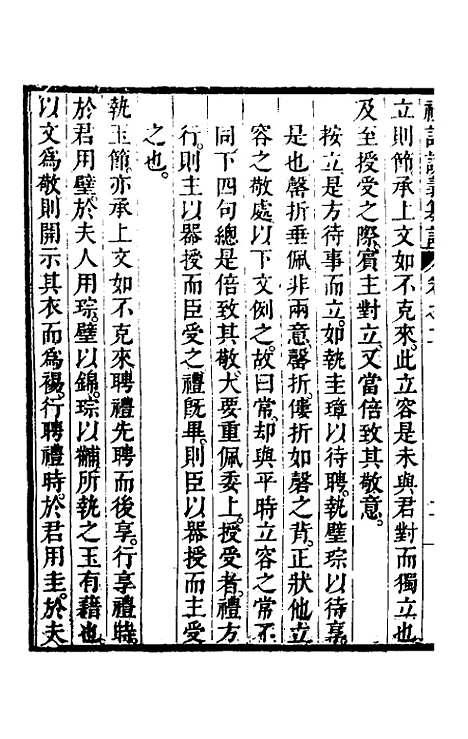 立則節承上文如不克來此立容是未與君對而獨立也
及至授受之際賓主對立又當倍致其敬意
按立是方待事而立如執圭璋以待聘執璧琮以待享
是也磬折垂佩非兩意磬折僂折如磬之背正狀他立
容之敬處以下文例之故曰常却與平時立容之常不
同下四句總是倍致其敬大要重佩委上授受者禮方
行則主以器授而臣受之禮旣畢則臣以器授而主受
之也
執玉節亦承上文如不克來聘禮先聘而後享行享禮時
於君用璧於夫人用琮璧以錦琮以黼所執之玉有藉也
以文爲敬則開示其衣而爲裼行聘禮時於君用圭於夫